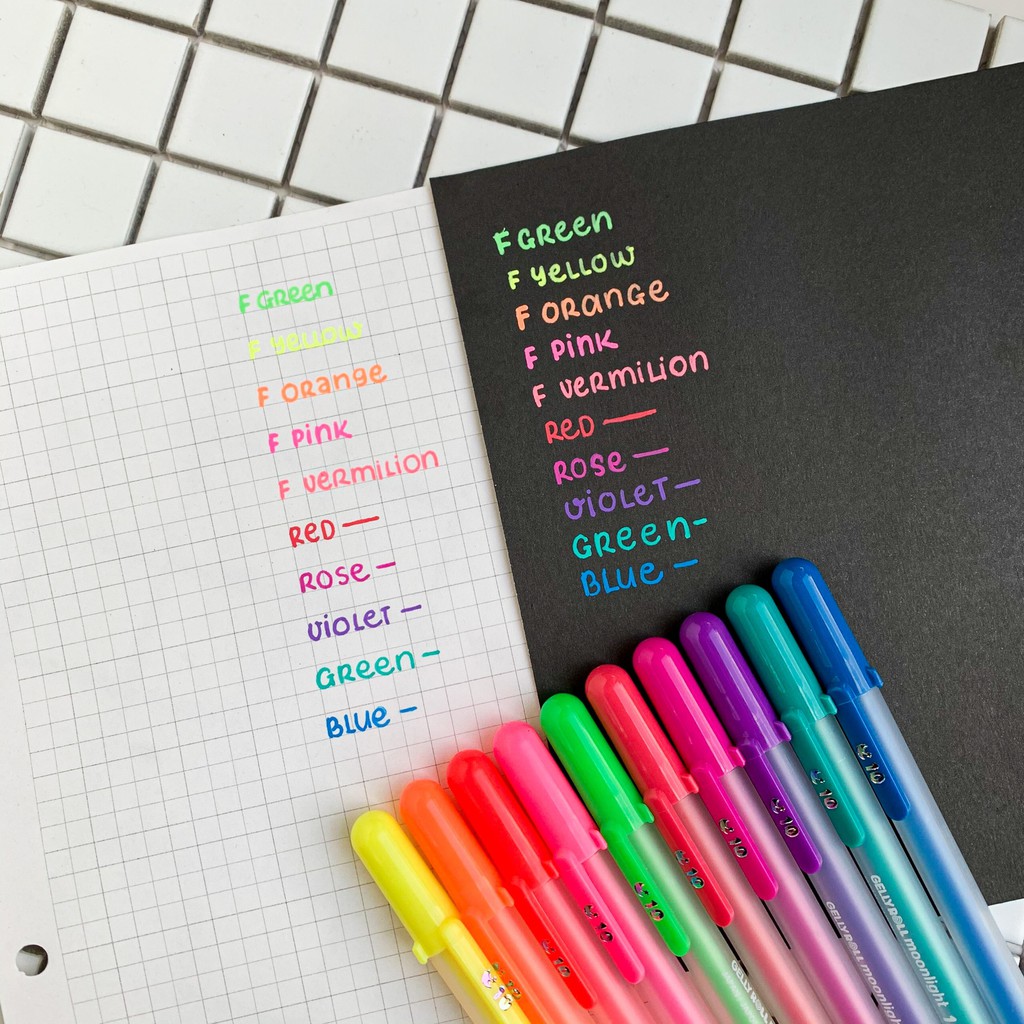 F GReen
F YeLLOW
F ORange
F Pink
F VeRMiLiOn
ReD —
ROSe —
ViOLeT —
GReen –
BLUe –
F GReen
F YeLLOW
F ORange
F Pink
F VeRMiLiOn
ReD —
ROSe —
ViOLeT —
GReen –
BLUe –
10
10
10
10
10
10
10
10
10
10
GELLY ROLL
GELLY ROLL moonlight
GELLY ROLL moonlight 1